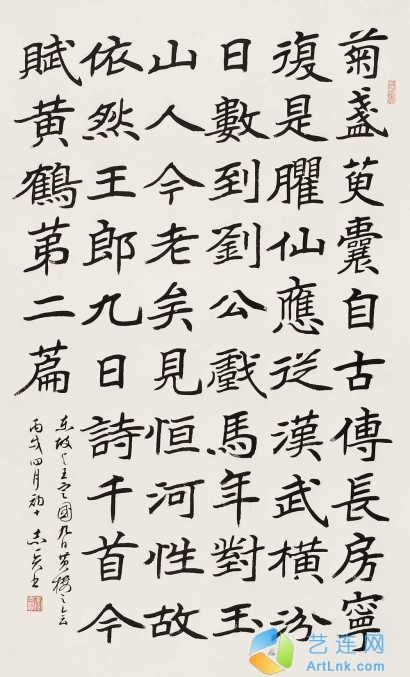 菊盞萸囊自古傳長房寧
復是臞仙應從漢武橫汾
日數到劉公戲馬年對玉
山人今老矣見恒河性故
依然王郎九日詩千首今
賦黃鶴第二篇
國九日黃樓之會
丙戌四月初十
艺连网
ArtLnk.com